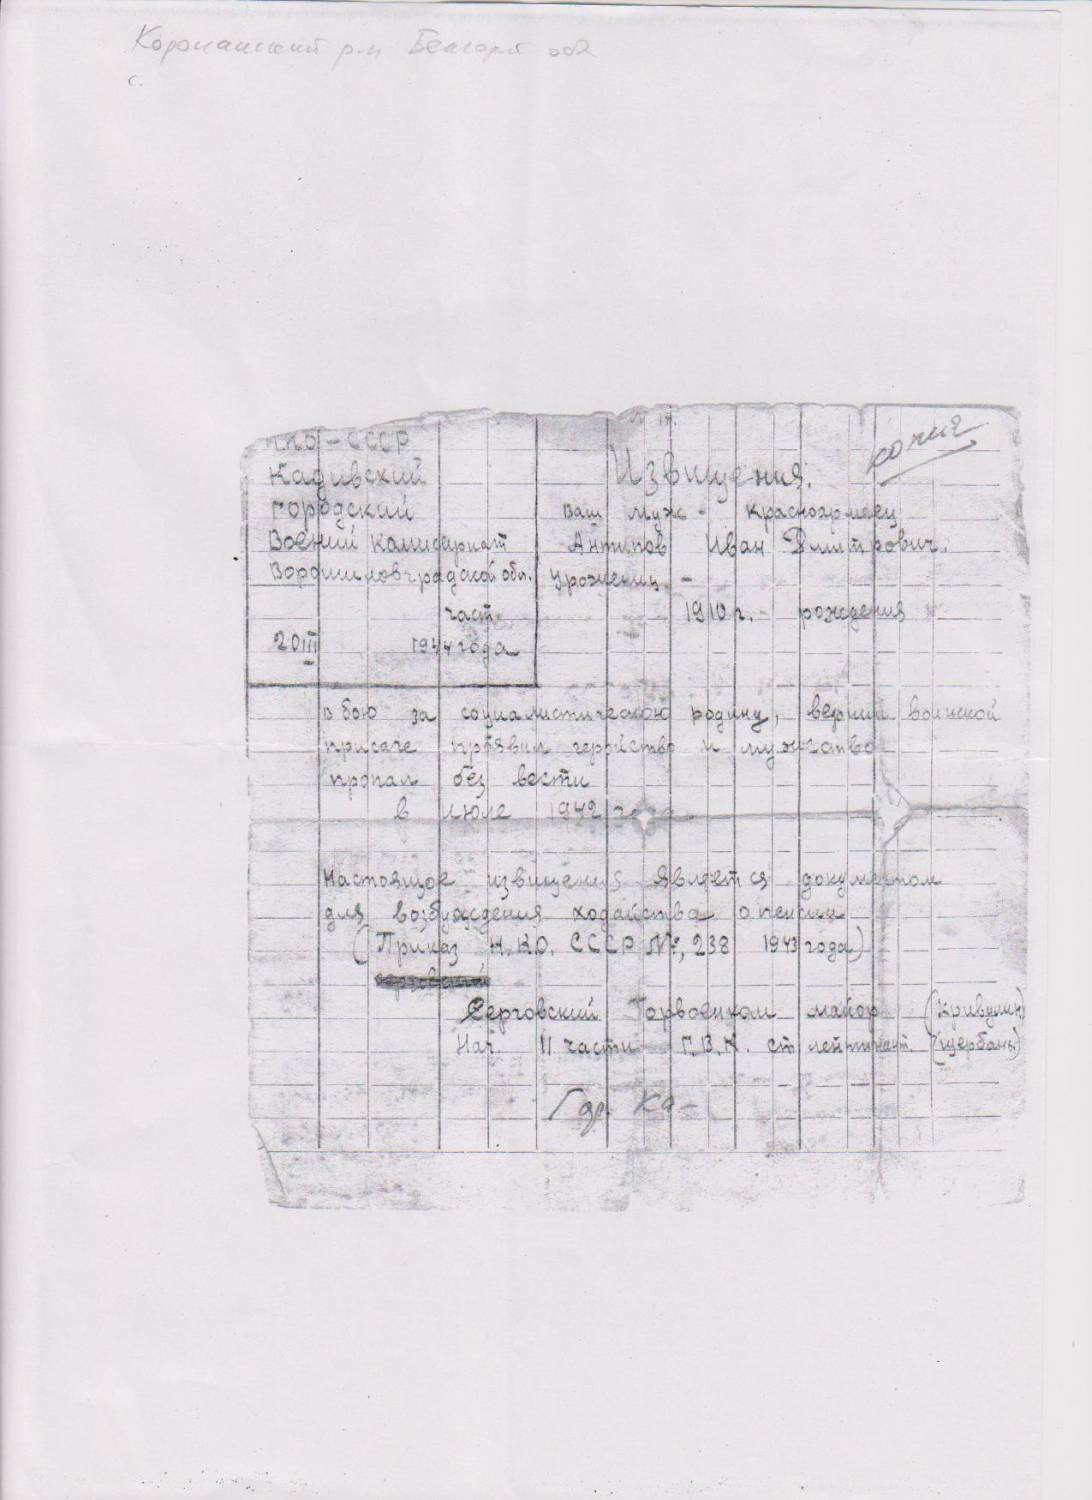 р-н обл
с.
НКО-СССР
Кадивский
городский
Воений Камисариат
Ворошиловградской обл.
част
20 III 1944 года
копия
Извищения.
Ваш муж - Красноармеец
Антипов Иван Дмитрович.
урожениц -
1910 г. - рождения
в бою за социалистическою родину, верний воинской
присяге проявил геройство и мужиство
пропал без вести
в июле 1942 года
Настоящое извищения является документом
для возбуждения ходайства о пенсии
(Приказ Н.КО. СССР №, 238 1943 года)
Серговский Горвоенком майор (Кривулин)
Нач II части Г.В.К. ст лейтинант (щербань)